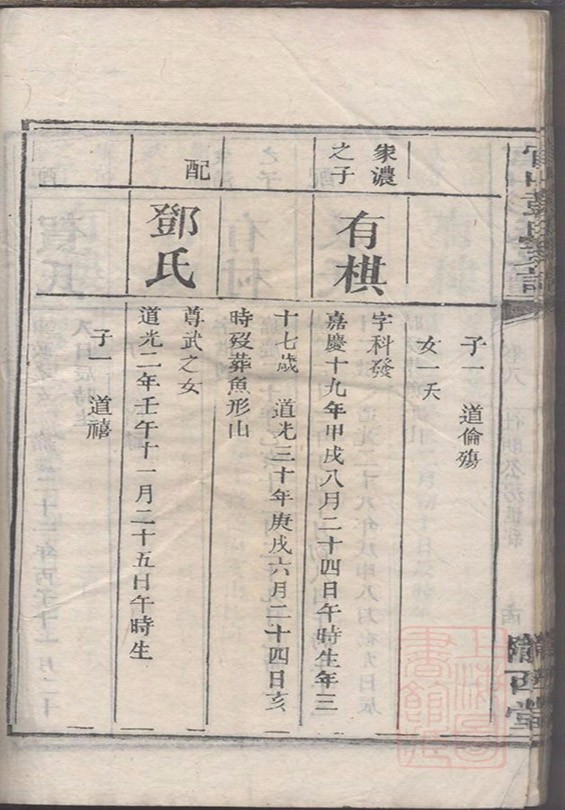 子一 道倫殤
女一夭
象濃之子
有棋
字科發
嘉慶十九年甲戌八月二十四日午時生年三
十七歲 道光三十年庚戌六月二十四日亥
時歿葬魚形山
配
鄧氏
尊武之女
道光二年壬午十一月二十五日午時生
子一 道禧